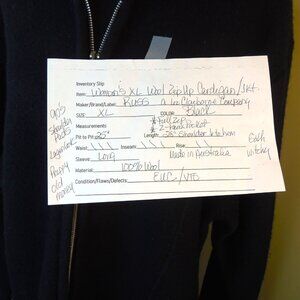 Inventory Slip
Item: Women's XL Wool Zip Up Cardigan/Jkt.
Maker/Brand/Label: RUSS a Liz Claiborne Company
SIZE: XL COLOR: Black
Measurements * Full Zip
* 2-hand Pocket
Pit to Pit: 25" 28" Shoulder to hem
Waist: Inseam: Rise:
Sleeve: Long Made in Australia
Material: 100% Wool
Condition/Flaws/Defects: EUC/VTG
90's
Old money
Goth
witchy